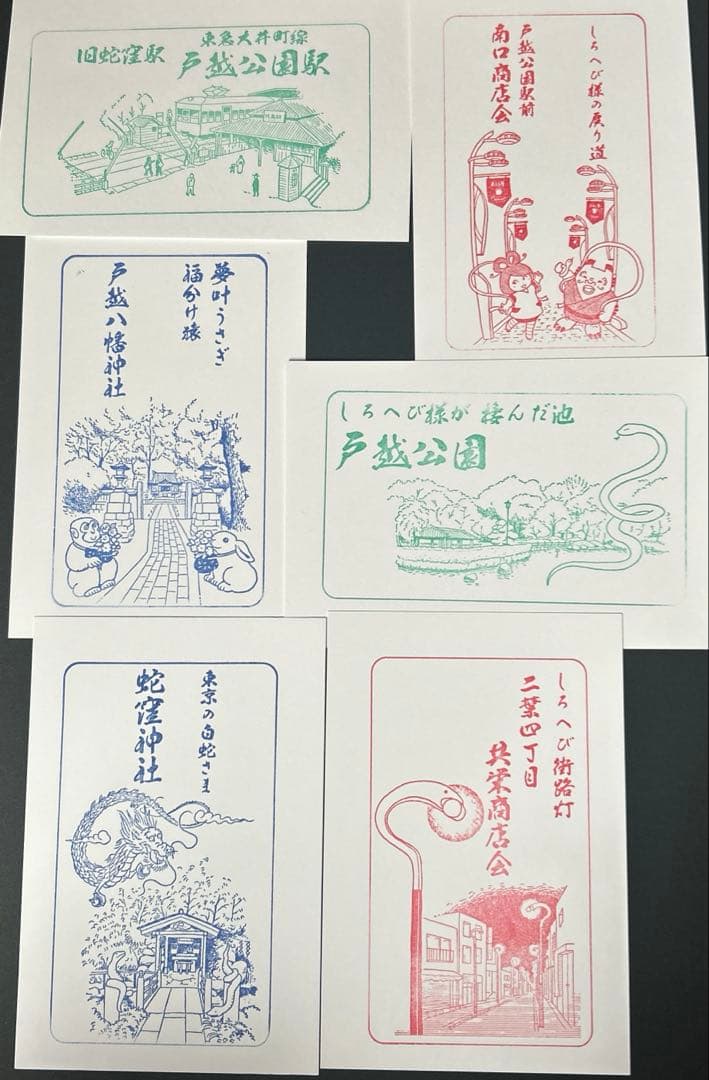 旧蛇窪駅
東急大井町線
戸越公園駅
しろへび様の戻り道
戸越公園駅前
南口商店会
夢叶うさぎ
福分け猿
戸越八幡神社
しろへび様が棲んだ池
戸越公園
東京の白蛇さま
蛇窪神社
しろへび街路灯
二葉四丁目
共栄商店会